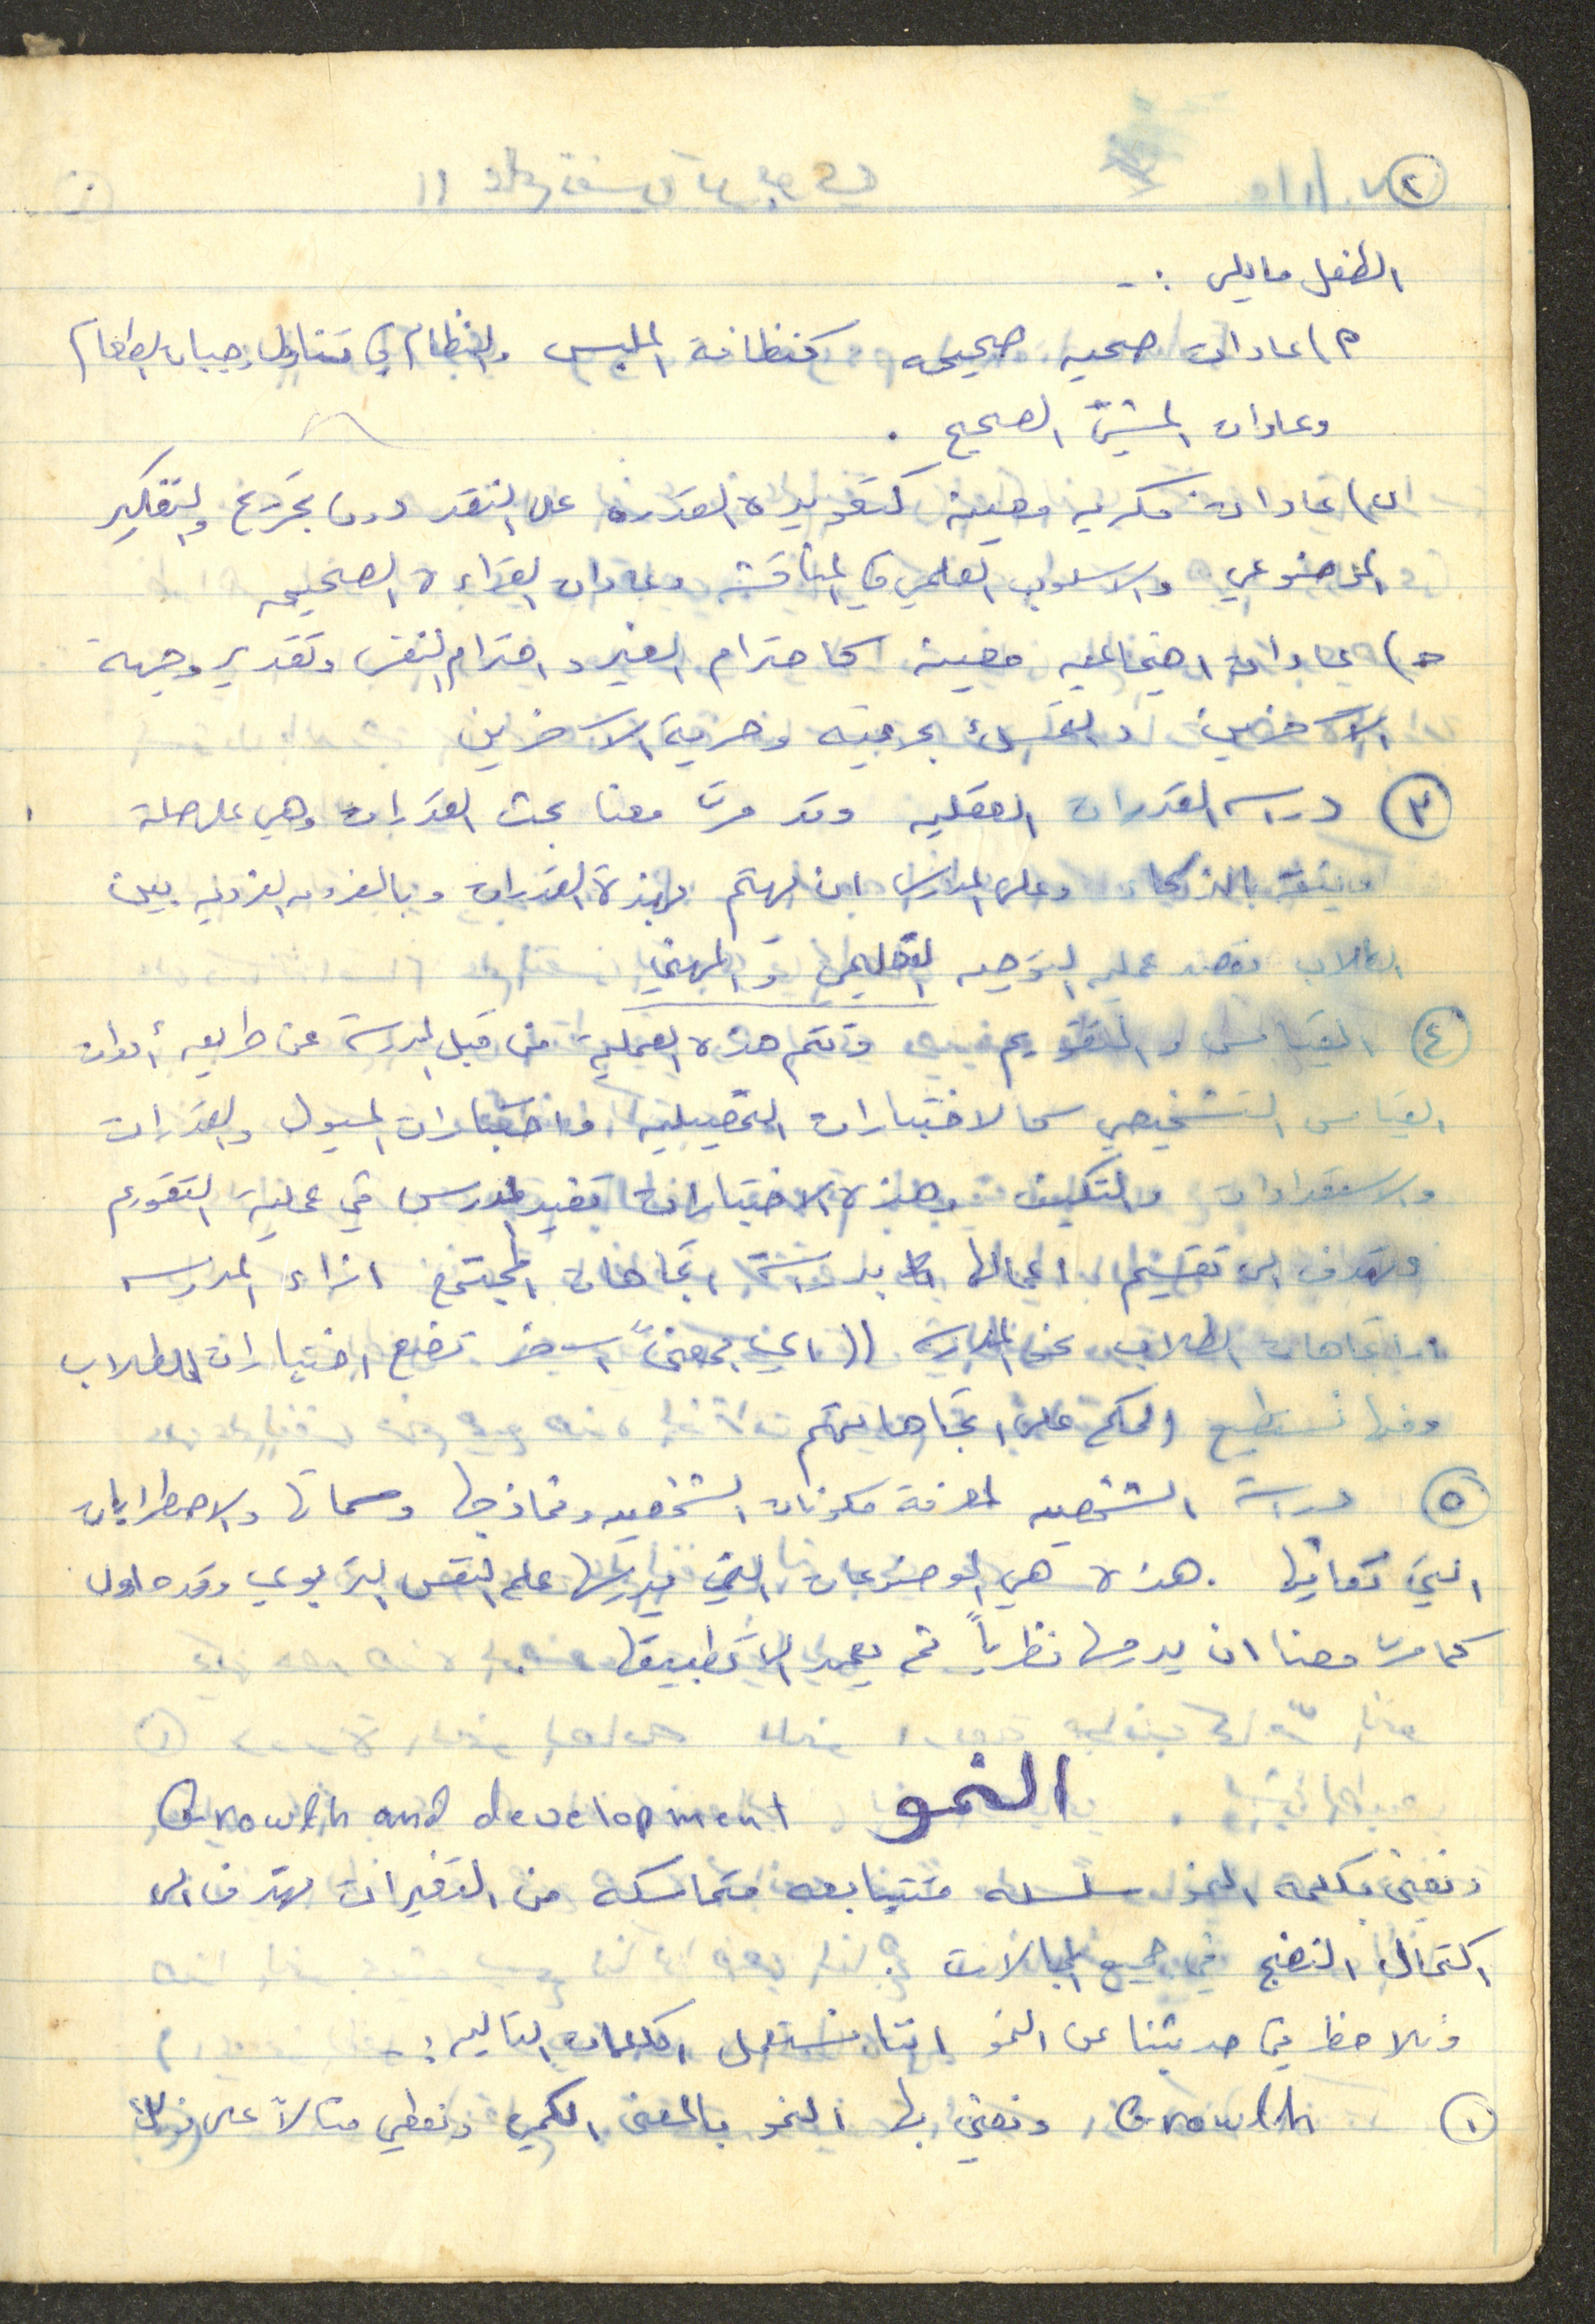 ٢
الطفل مايلي :-
٢) عادات صحيه صحيحه كنظافة الملبس والنظام في تناول وجبات الطعام
وعادات المشي الصحيح .
ب) عادات فكريه معينه كتعويده القدره على النقد دون تجريح والتفكير
الموضوعي والاسلوب العلمي في المناقشه وعادات القراءة الصحيحه
ح) عادات اجتماعيه معينه كاحترام الغير واحترام النفس وتقدير وجهة
الآخرين والتمسك بحريته وحرية الآخرين
٣ دراسه القدرات العقليه وقد مرت معنا بحث القدرات وهي على صلة
وثيقه بالذكاء وعلى المدارس ان تهتم بهذة القدرات وبالفروق الفرديه بين
الطلاب بقصد عمليه التوجيه التعليمي والمهني
٤ القياس والتقويم وتتم هذه العملية من قبل المدرسة عن طريق أدوات
القياس التشخيصي كالاختبارات التحصيليه واختبارات الميول والقدرات
والاستعدادات والتكيف وهذه الاختبارات تفيد المدرس في عملية التقويم
وتهدف الى تقييم اعمالها بدراسة اتجاهات المجتمع ازاء المدرسه
واتجاهات الطلاب نحو المدرسه (( اي بمعنىً آخر تضع اختبارات للطلاب
ومنها نستطيع الحكم على اتجاهاتهم
٥ دراسة الشخصيه لمعرفة مكونات الشخصيه ونماذجها وسماتها والاضطرابات
التي تعانيها . هذه هي الموضوعات التي يدرسها علم النفس التربوي وقد حاول
كما مر معنا ان يدرسها نظرياً ثم يعمد الى تطبيقها
النمو Growth and development
ونعني بكلمه النمو سلسله متتابعه متماسكه من التغيرات تهدف الى
اكتمال النضج في جميع المجالات
ونلاحظ في حديثنا عن النمو اننا نستعمل الكلمات التاليه :
١ Growth ونعني بها النمو بالمعنى الكمي ونعطي مثالاً على ذلك